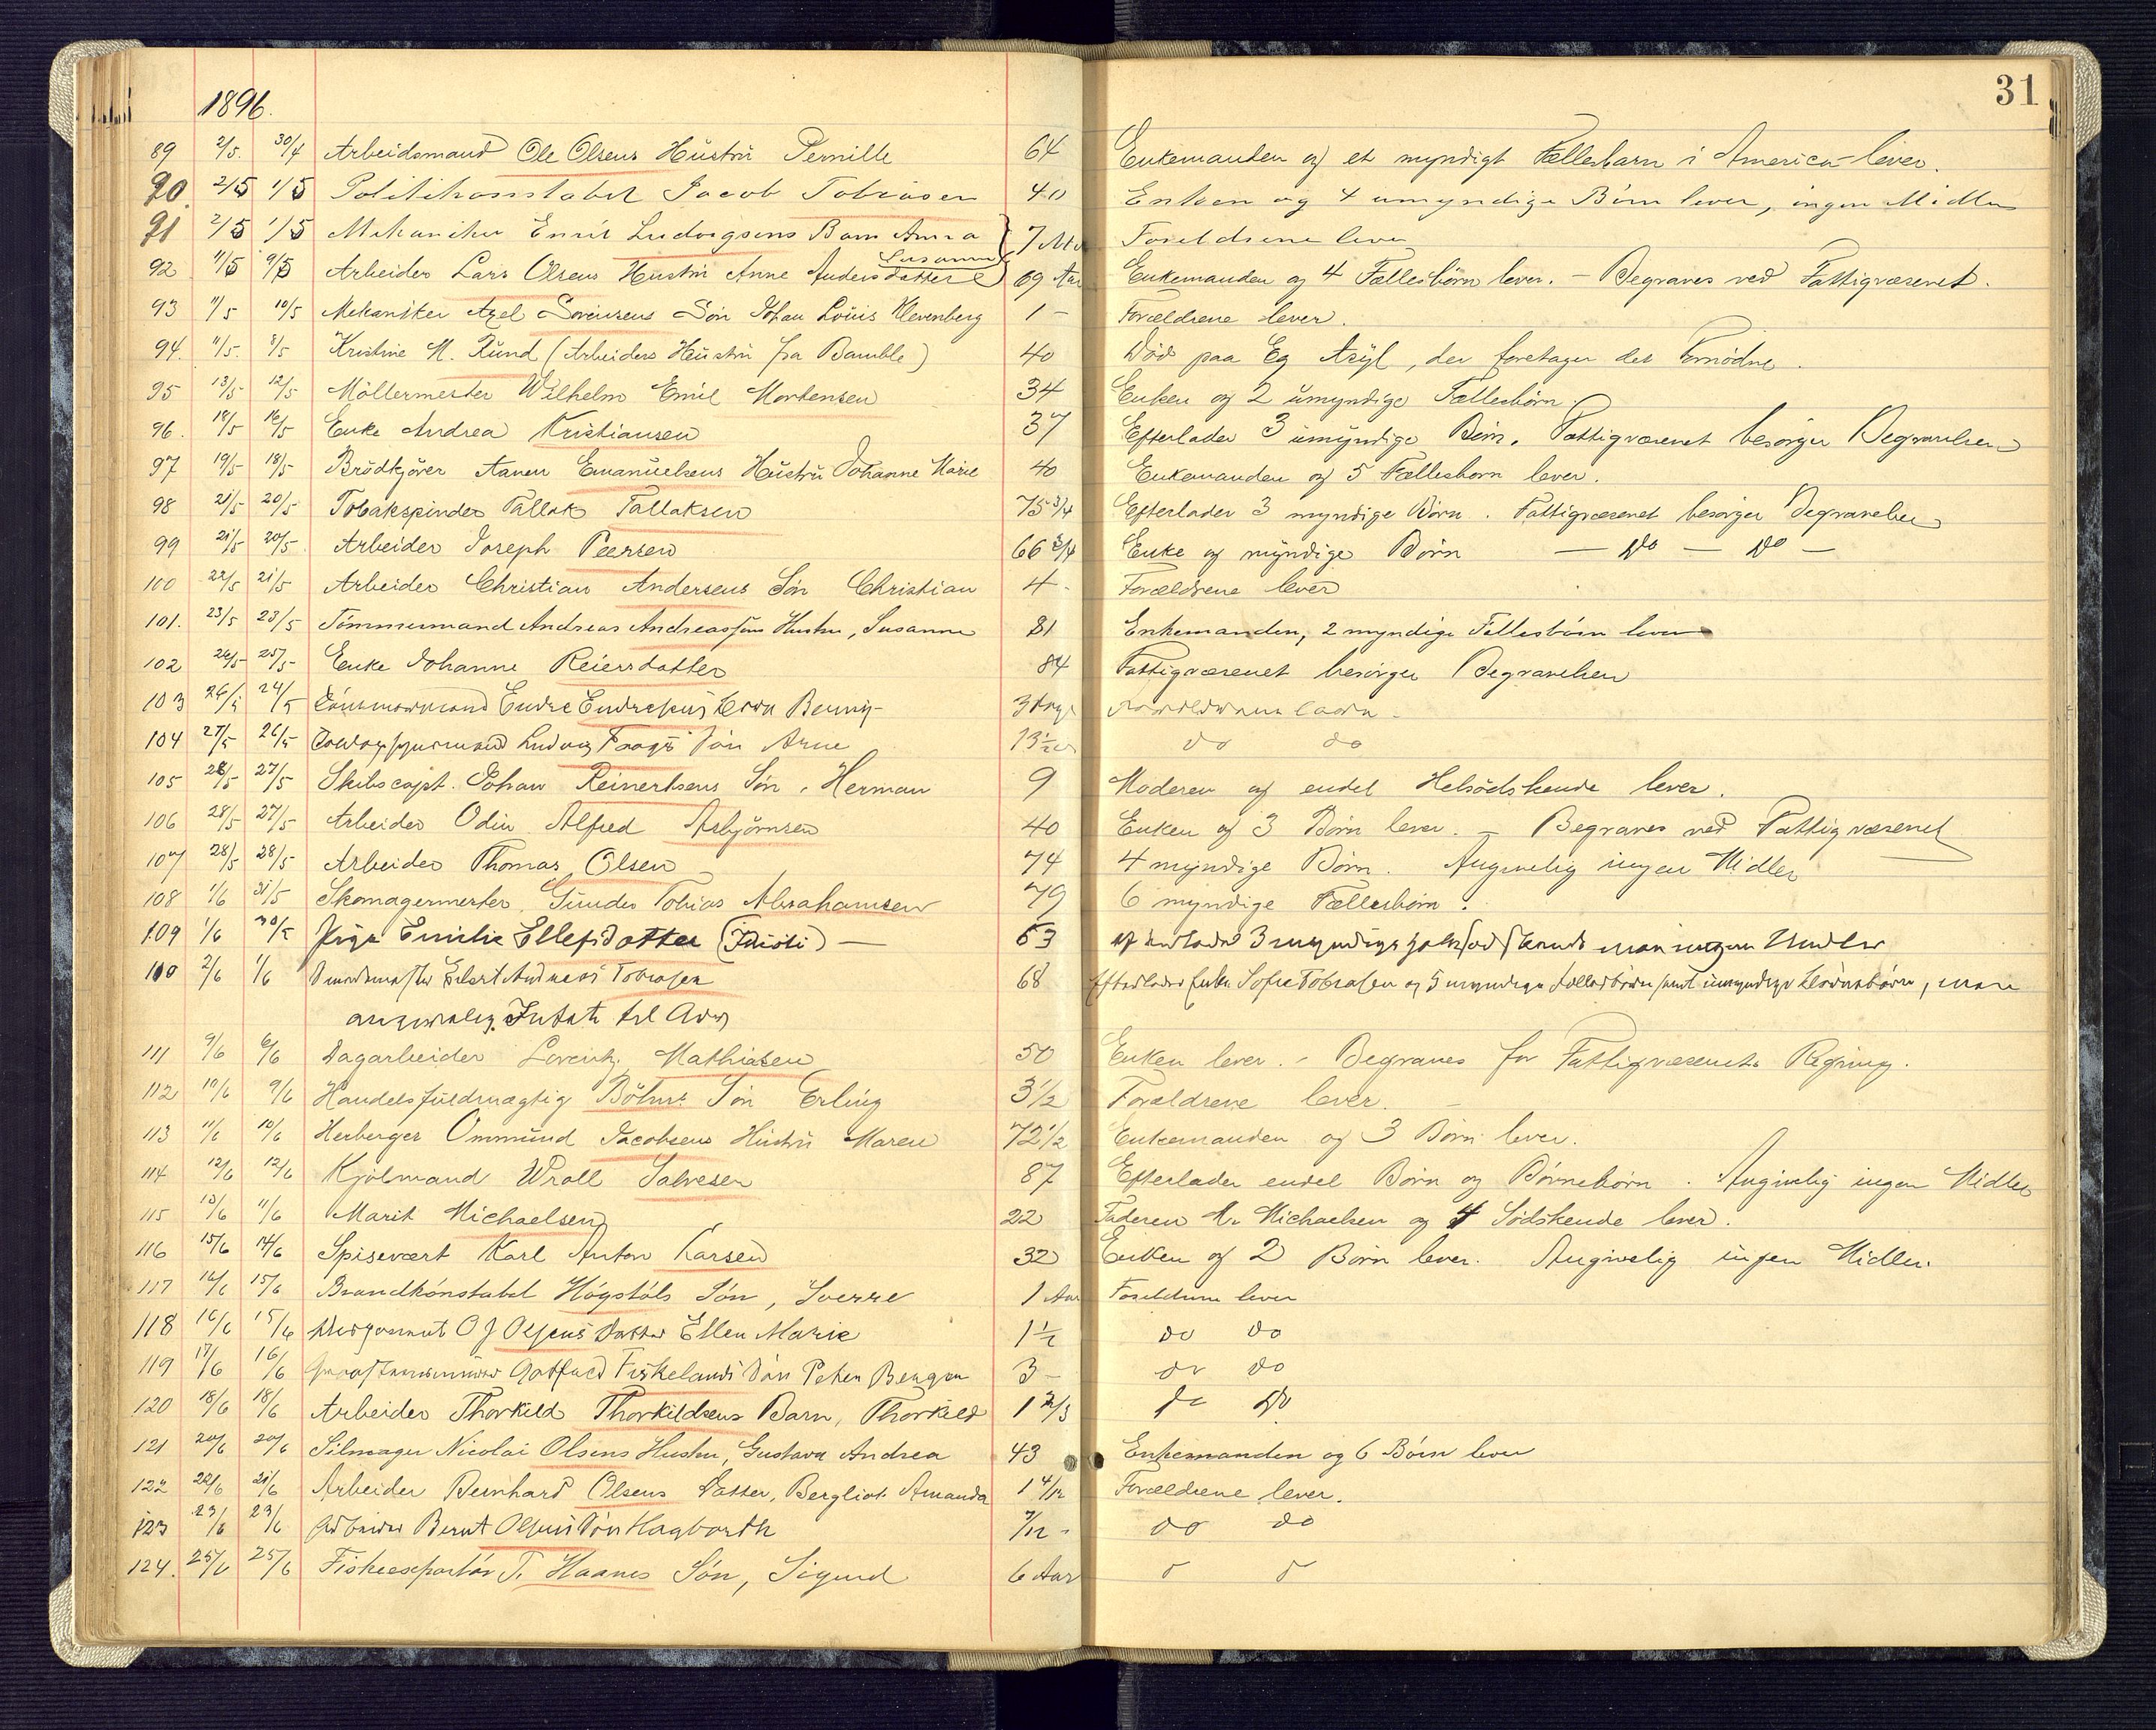 1896.
31
89 2/5. 30/4 Arbeidsmand Ole Olsens Hustru Pernille 64 Enkemanden og et myndigt Fællesbarn i America lever.
90. 2/5 1/5 Politikonstabel Jacob Tobiasen 40 Enken og 4 umyndige Børn lever, ingen Midler
91 2/5 1/5 Mekaniker Enrit Ludvigsens Barn Anna Susanne 7 Mdr Forældrene lever
92 11/5 9/5 Arbeider Lars Olsens Hustru Anne Andersdatter 69 Aar Enkemanden og 4 Fællesbørn lever. – Begraves ved Fattigvæsenet.
93 11/5 10/5 Mekaniker Axel Sørensens Søn Johan Louis Klevenberg 1 – Forældrene lever.
94. 11/5. 8/5 Kristine M. Rund (Arbeiders Hustru fra Bamble) 40 Død paa Eg Asyl, der foretager det Fornødne.
95 13/5 12/5 Möllermester Wilhelm Emil Mortensen 34 Enken og 2 umyndige Fællesbørn.
96. 18/5 16/5 Enke Andrea Kristiansen 37 Efterlader 3 umyndige Børn. Fattigvæsenet besørger Begravelsen
97 19/5 18/5 Brödkjörer Aanen Emanuelsens Hustru Johanne Marie 40 Enkemanden og 5 Fællesborn lever.
98 21/5 20/5 Tobakspinder Tallak Tallaksen 75 3/4 Efterlader 3 myndige Børn. Fattigvæsenet besørger Begravelsen
99 21/5 20/5 Arbeider Joseph Peersen 66 3/4 Enke og myndige Børn — do — do —
100 22/5 21/5 Arbeider Christian Andersens Søn Christian 4 - Forældrene lever
101. 23/5 23/5 Tömmermand Andreas Andreassens Hustru, Susanne 81 Enkemanden, 2 myndige Fellesbörn lever
102 26/5 25/5 Enke Johanne Reiersdatter 84 Fattigvæsenet besørger Begravelsen
103 26/5 24/5 Endre Endresens Benny 3 Forældrene lever.
104 27/5 26/5 Ludvig Søn Arne 13 1/2 do do
105 28/5 27/5 Skibscapt. Johan Reinertsens Søn, Herman 9 Moderen og endel Helsødskende lever.
106 28/5 27/5 Arbeider Odin Alfred Asbjørnsen 40 Enken og 3 Børn lever. – Begraves ved Fattigvæsenet
107 28/5 28/5 Arbeider Thomas Olsen 74 4 myndige Børn. Angivelig ingen Midler
108 1/6 31/5 Skomagermester Gunder Tobias Abrahamsen 79 6 myndige Fællesbörn.
109 1/6 30/5 Pige Emilie Ellefsdatter (Idioti) — 63 efterlader 3 myndige Helsødskende men ingen Midler
110 2/6 1/6 Eilert Andreas Tobiasen 68 Efterlader Enke Sofie Tobiasen og 5 myndige Fællesbörn samt umyndige Børnebørn, men
angivelig Intet til Arv
111 9/6 6/6 Dagarbeider Lorentz Mathiasen 50 Enken lever. – Begraves for Fattigvæsenets Regning.
112 10/6 9/6 Handelsfuldmægtig Böhms Søn Erling 3 1/2 Forældrene lever.
113 11/6 10/6 Herberger Ommund Jacobsens Hustru Maren 72 1/2 Enkemanden og 3 Børn lever.
114 12/6 12/6 Kjølmand Wroll Salvesen 87 Efterlader endel Børn og Børnebörn. Angivelig ingen Midler
115 13/6 11/6 Marit Michaelsen 22 Faderen M. Michaelsen og 4 Sødskende lever.
116 15/6 14/6 Spisevært Karl Anton Larsen 32 Enken og 2 Børn lever. Angivelig ingen Midler.
117 16/6 15/6 Brandkonstabel Högstöls Søn, Sverre 1 Aar Forældrene lever
118 16/6 15/6 Sergeant O J Olsens Datter Ellen Marie 1 1/2 do do
119 17/6 16/6 Gotfred Fiskelands Søn Peter Bergen 3 – do do
120 18/6 18/6 Arbeider Thorkild Thorkildsens Barn, Thorkild 1 2/3 do do
121 20/6 20/6 Silmager Nicolai Olsens Hustru, Gustava Andrea 43 Enkemanden og 6 Börn lever
122 22/6 21/6 Arbeider Bernhard Olsens Datter, Bergliot Amanda 1 4/12 Forældrene lever.
123 23/6 23/6 Arbeider Bernt Olsens Søn Hagbarth 7/12 - do do
124. 25/6 25/6 Fiskeexportör T. Haanes Søn, Sigurd 6 Aar